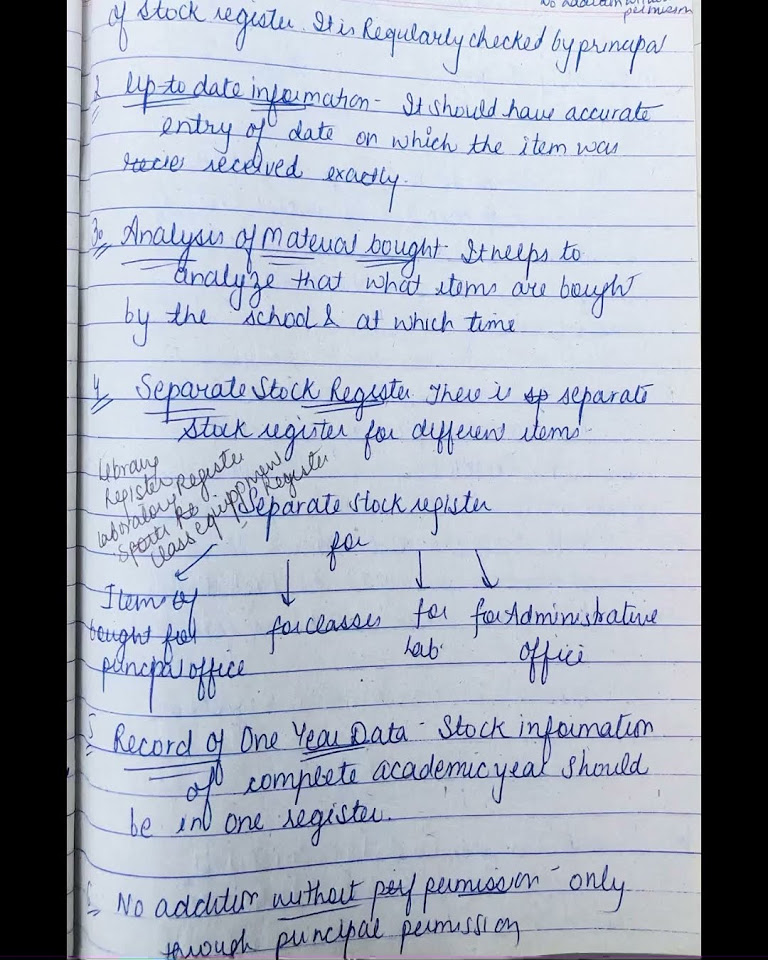 No addition without
permission
of stock register. It is Regularly checked by principal
2 Up-to date information - It should have accurate
entry of date on which the item was
received exactly.
3. Analysis of Material bought - It helps to
analyze that what items are bought
by the school & at which time
4 Separate Stock Register There is sp separate
stock register for different items -
Library
Register
Laboratory Register
Sports Re
Class equippment Register
Separate stock register
for
Item of
bought for
principal office
for classes
for
Lab.
for Administrative
office
5 Record of One Year Data - Stock information
of complete academic year should
be in one register.
6 No addition without perf permission - only
through principal permission